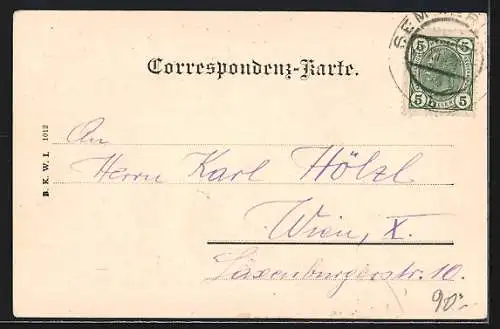 SEMMERI
5 5
5 5
Correspondenz-Karte.
B. K. W. I. 1012
An
Herrn Karl Hölzl
Wien, X.
Laxenburgerstr. 10.